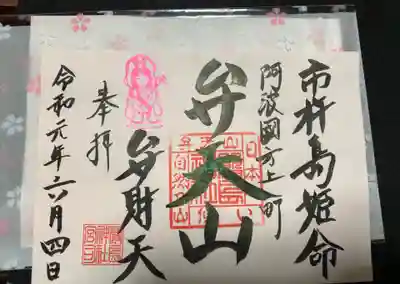 市杵島姫命
阿波國方上町
弁天山
弁財天
奉拝
令和元年六月四日